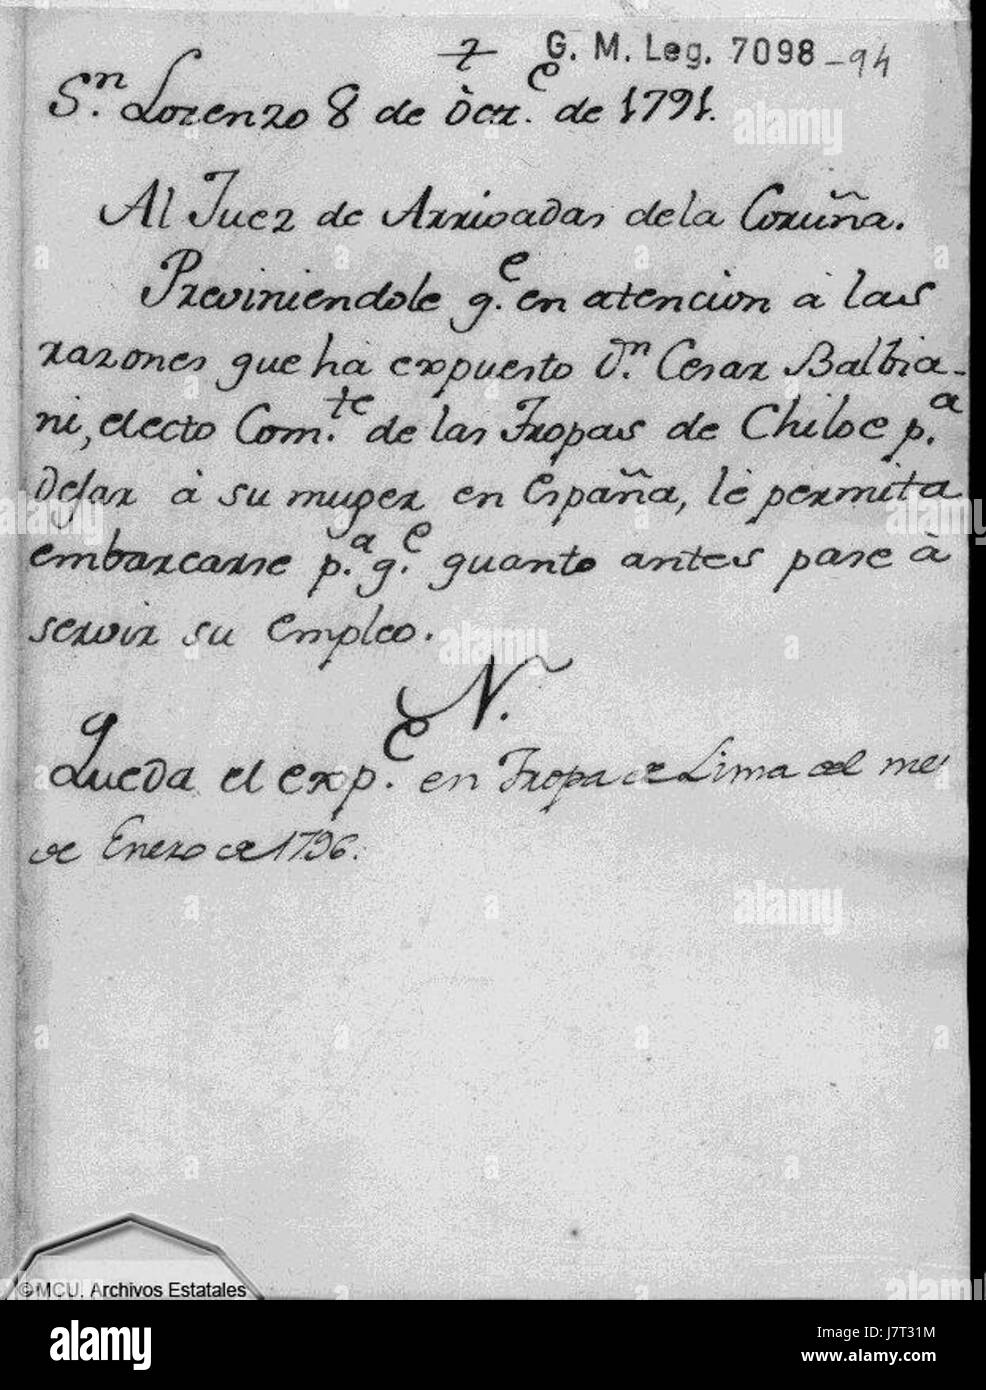 7
G. M. Leg. 7098 -94
S.n Lorenzo 8 de Oct.e de 1791.
Al Juez de Arrivadas dela Coruña.
Previniendole q.e en atencion á las
razones que há expuesto D.n Cesar Balbia-
ni, electo Com.te de las Tropas de Chiloe p.a
dejar á su muger en España, lé permita
embarcarse p.a q.e quanto antes pase á
servir su empleo.
N.
Queda el exp.e en Tropa de Lima del mes
de Enero de 1796.
©MCU. Archivos Estatales
alamy
Image ID: J7T31M
www.alamy.com